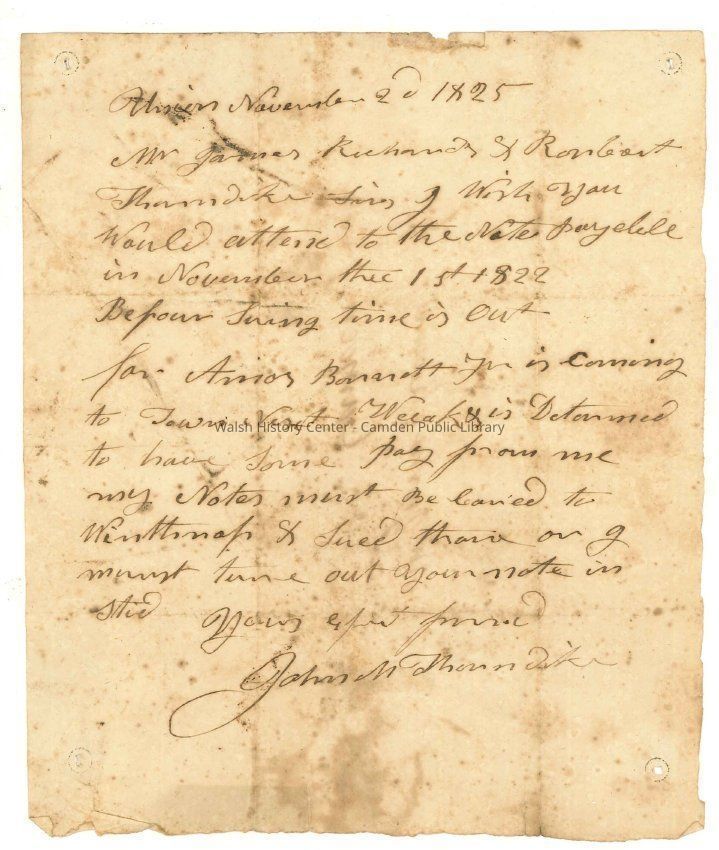 Union November 2d 1825
Mr James Richards & Roobert
Thorndike Sirs I Wish you
Would attend to the Note payebell
in November thee 1st 1822
Befour Suing time is Out
for Amos Barrett Jr is Coming
to Town Next Weeak & is Detormed
Walsh History Center - Camden Public Library
to have Some Pay from me
my Notes must Be Caried to
Winthrop & Sued thare or I
mourst turne out your note in
sted
Yours
John M Thorndike